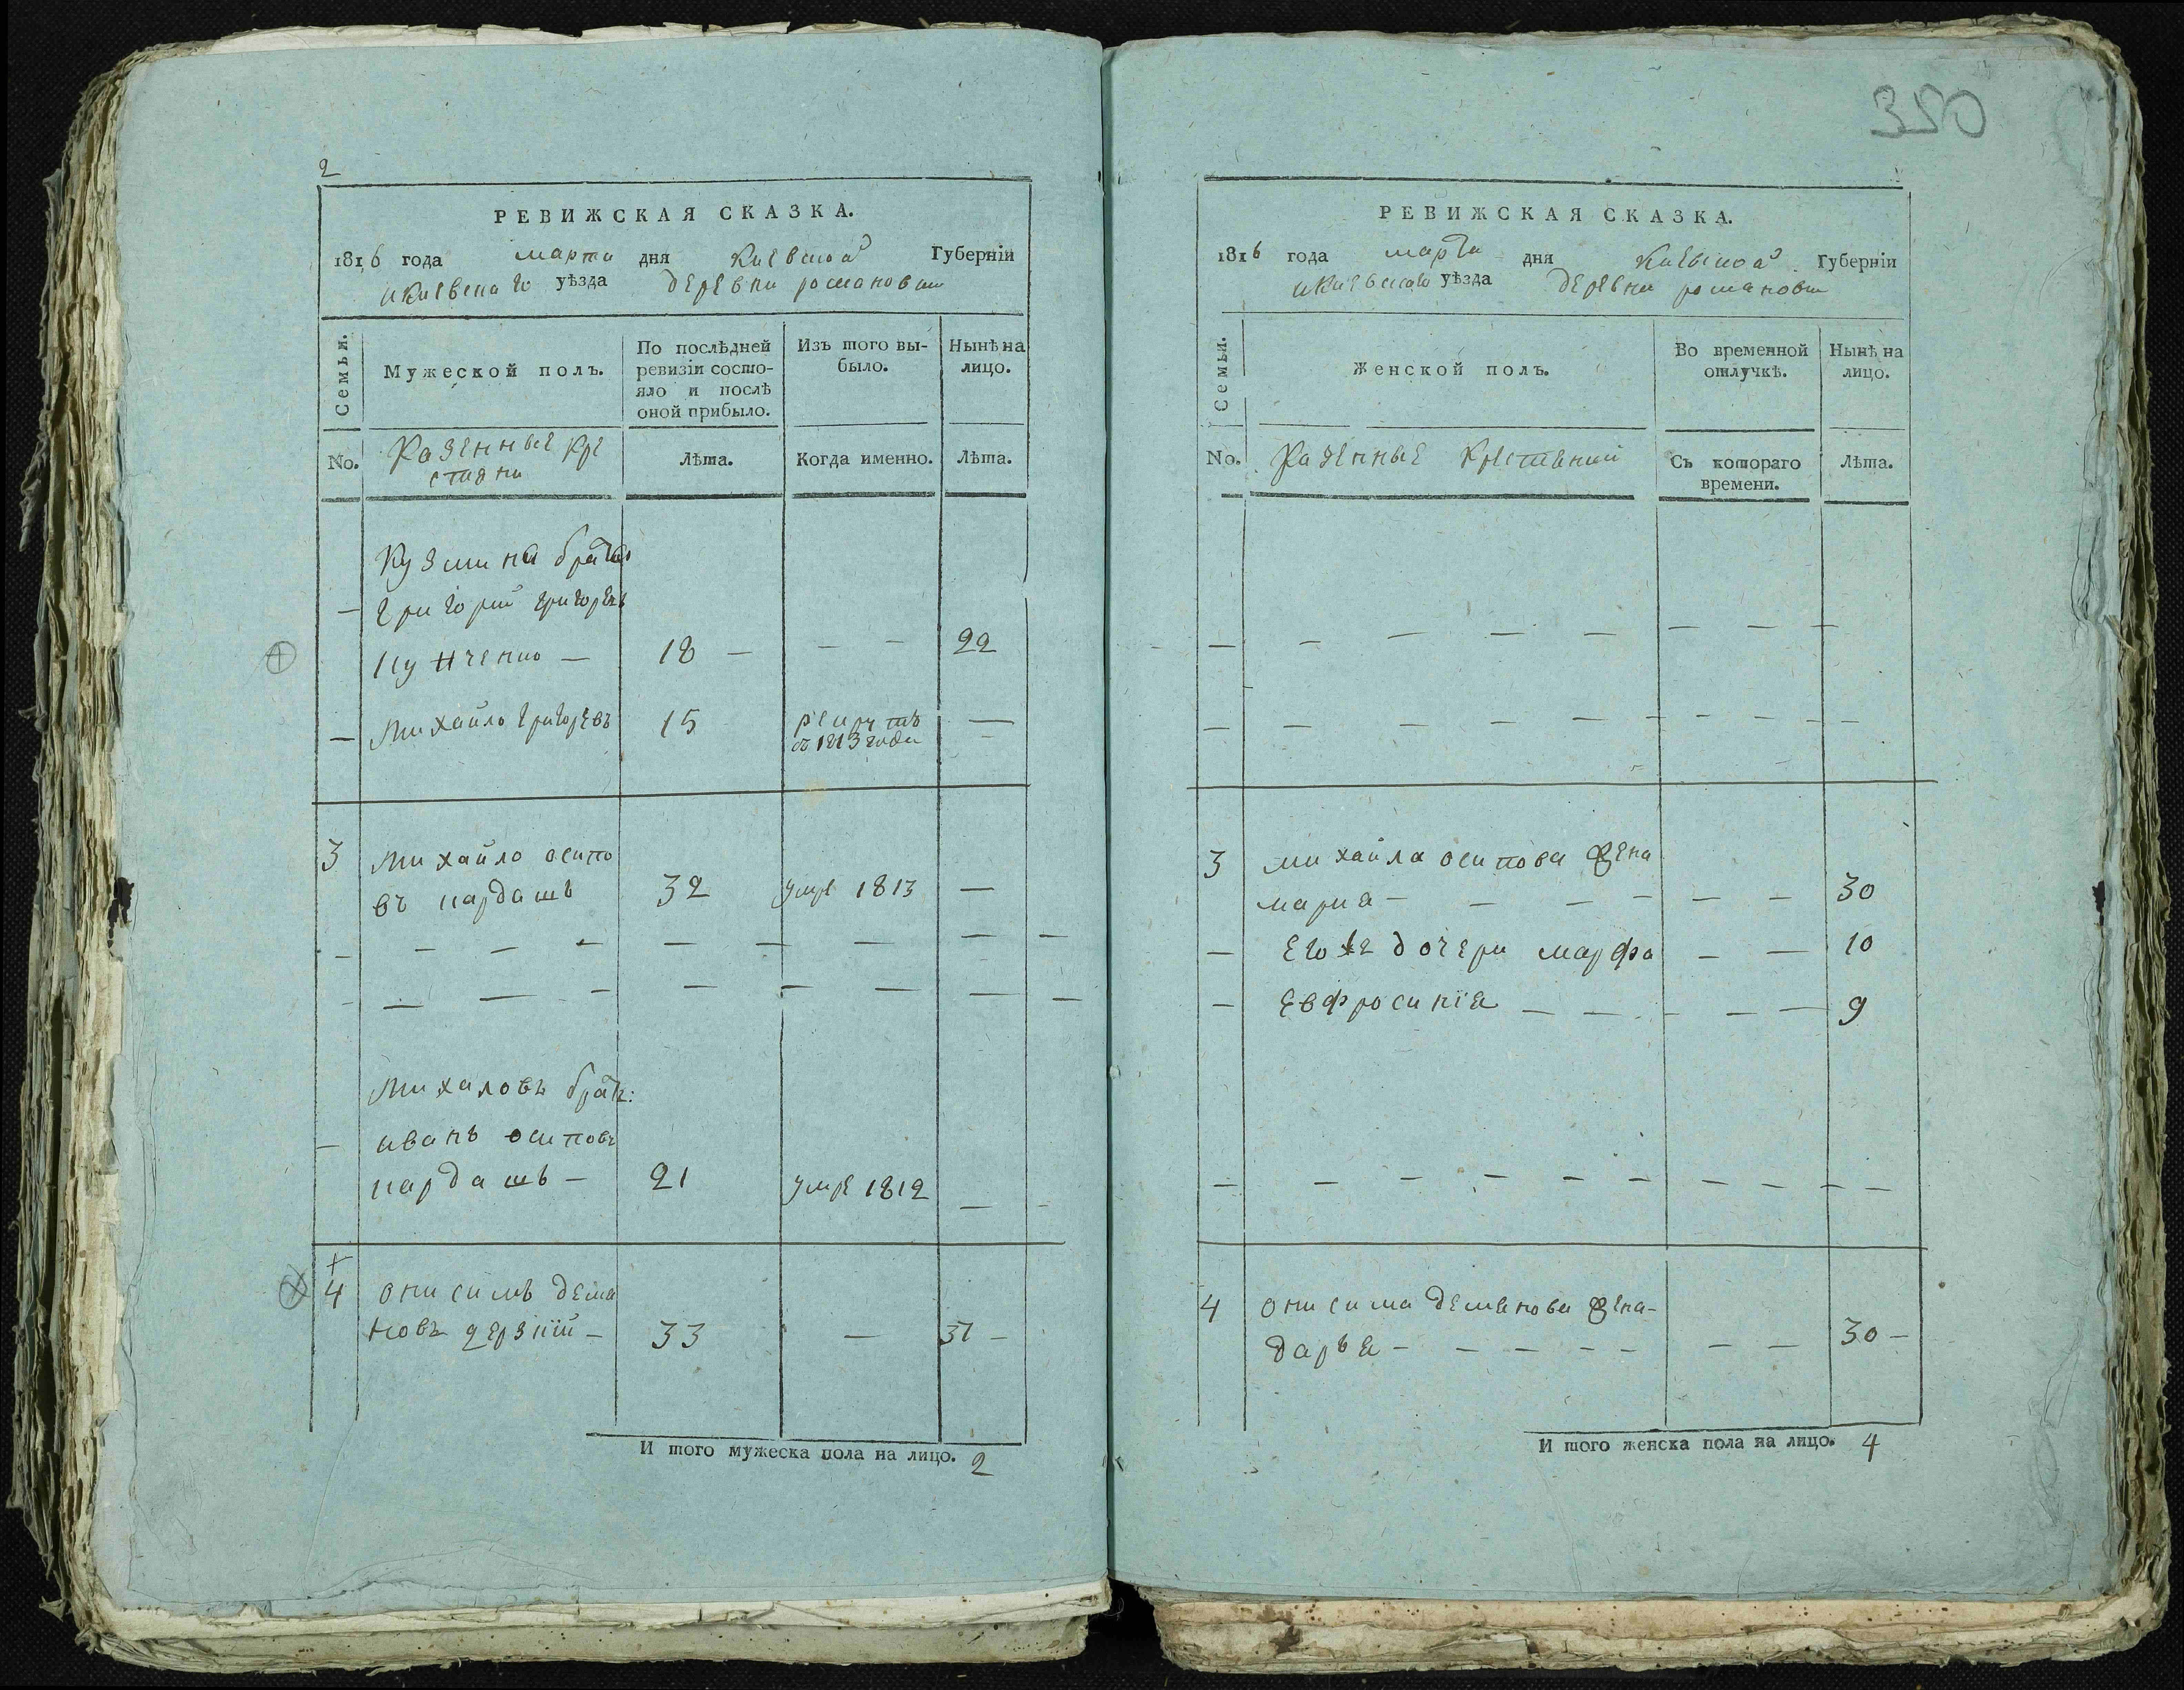 2
РЕВИЖСКАЯ СКАЗКА.
1816 года марта дня Киевской Губерніи
и Киевского уѣзда деревни романовки
Семьи.
Мужеской полъ.
По послѣдней ревизіи состо-
яло и послѣ
оной прибыло.
Изъ того вы-
было.
Нынѣ на
лицо.
No.
Казенные кре
стяни
Лѣта.
Когда именно.
Лѣта.
Кузмин братъ
— григорий григорьевъ
— 18 — — — 22
— михайло григоревъ 15 рекрутъ
въ 1813 года —
3 михайло осипо
въ кардашъ 32 умре 1813 —
михаловъ братъ:
— иванъ осиповъ
кардашъ — 21 умре 1812 —
4 онисимъ дема
новъ — 33 — 37 —
И того мужеска пола на лицо. 2
350
РЕВИЖСКАЯ СКАЗКА.
1816 года марта дня Киевской Губерніи
и Киевского уѣзда деревни романовки
Семьи.
Женской полъ.
Во временной
отлучкѣ.
Нынѣ на
лицо.
No.
Казенные
Съ котораго
времени.
Лѣта.
3 михайла осипова жена
мария — — — — — — 30
— его же дочери марфа — — 10
— евфросиния — — — — — 9
4 онисима деманова жена —
дарья — — — — — — — 30 —
И того женска пола на лицо. 4